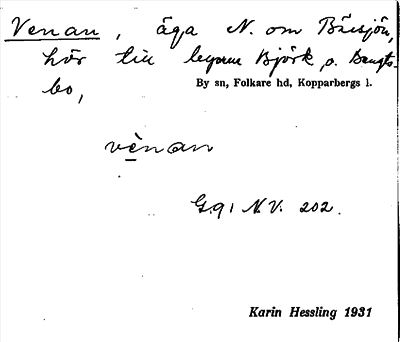 Venan, äga N. om Bäsjön,
hör till byarna Björk o. Bengts-
bo,
By sn, Folkare hd, Kopparbergs l.
vènan
G.q. N.V. 202.
Karin Hessling 1931